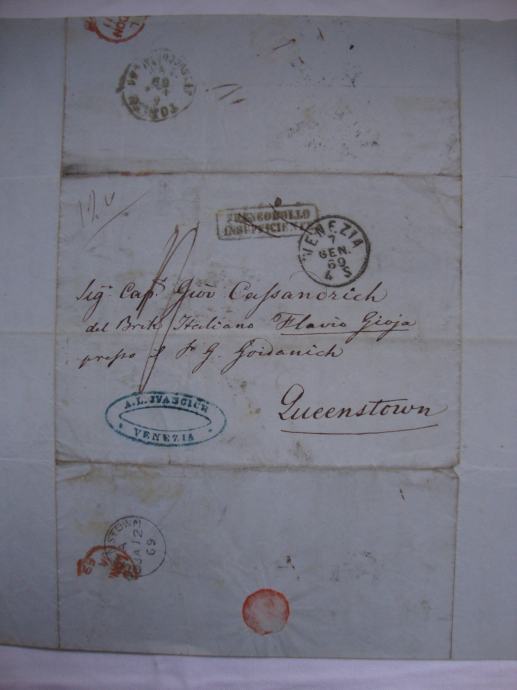 FRANCOBOLLO
INSUFFICIENTE
VENEZIA
7
GEN.
69
4 S
Sigr. Capn. Giov Cassandrich
del Brik Italiano Flavio Gioja
presso S G. Goidanich
Queenstown
A.L. IVANCICH
VENEZIA
JA 12
69